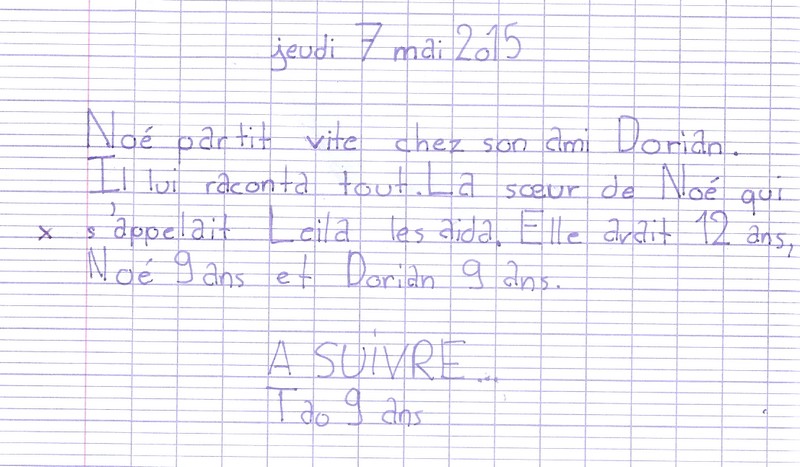 jeudi 7 mai 2015
Noé partit vite chez son ami Dorian.
Il lui raconta tout. La sœur de Noé qui
x s'appelait Leila les aida. Elle avait 12 ans,
Noé 9 ans et Dorian 9 ans.
A SUIVRE...
Tao 9 ans